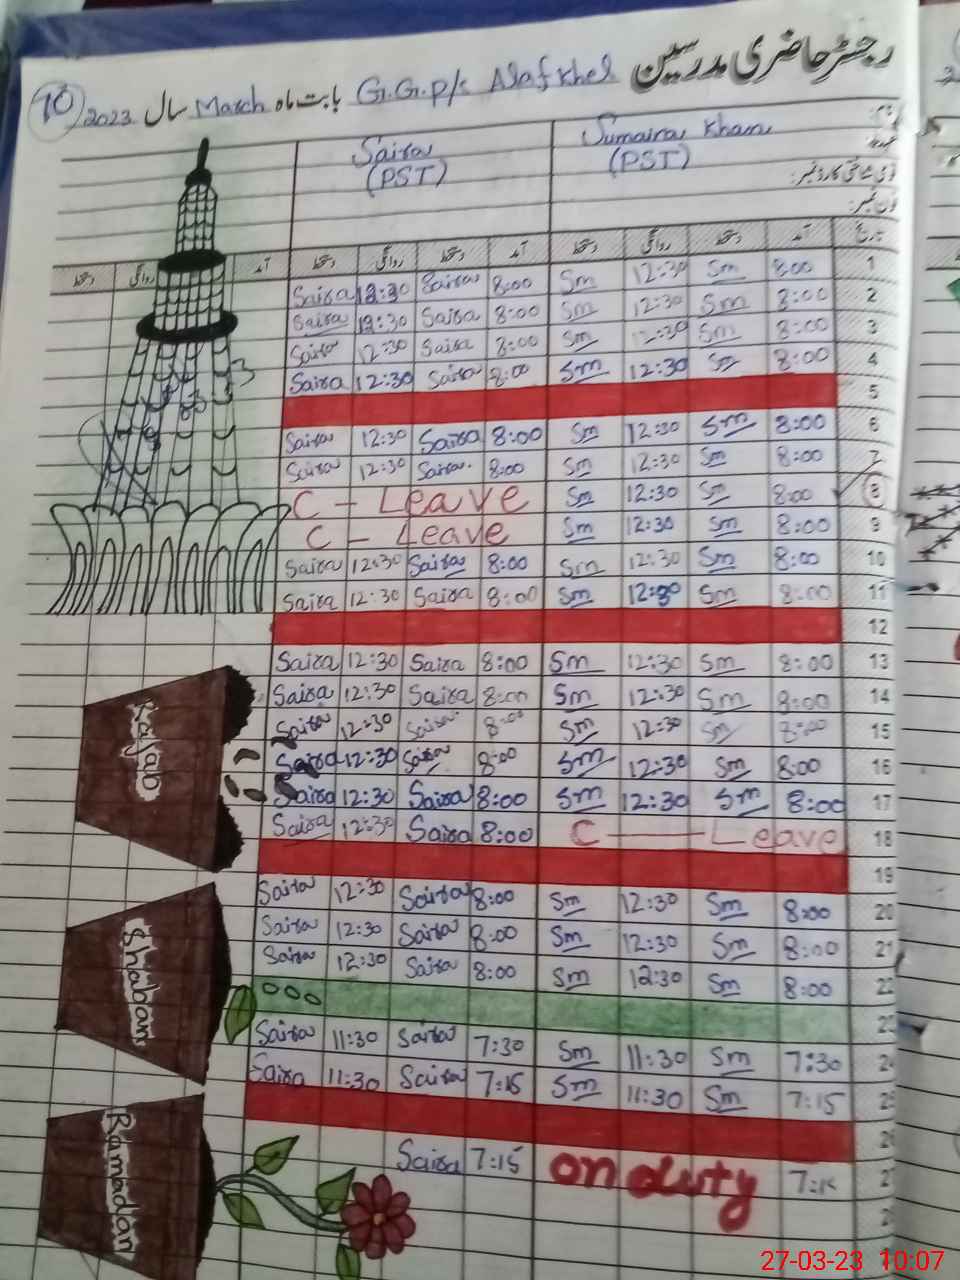 رجسٹر حاضری مدرسین
G.G.P/S Alaf Khel بابت ماہ March سال 2023 10
Saira Sumaira Khan نام:
(PST) (PST) عہدہ
قومی شناختی کارڈ نمبر:
فون نمبر:
دستخط روانگی آمد دستخط روانگی دستخط آمد دستخط روانگی دستخط آمد تاریخ
Saira 12:30 Saira 8:00 Sm 12:30 Sm 8:00 1
Saira 12:30 Saira 8:00 Sm 12:30 Sm 8:00 2
Saira 12:30 Saira 8:00 Sm 12:30 Sm 8:00 3
Saira 12:30 Saira 8:00 Sm 12:30 Sm 8:00 4
5
Saira 12:30 Saira 8:00 Sm 12:30 Sm 8:00 6
Saira 12:30 Saira. 8:00 Sm 12:30 Sm 8:00 7
C - Leave Sm 12:30 Sm 8:00 8
C - Leave Sm 12:30 Sm 8:00 9
Saira 12:30 Saira 8:00 Sm 12:30 Sm 8:00 10
Saira 12:30 Saira 8:00 Sm 12:30 Sm 8:00 11
12
Saira 12:30 Saira 8:00 Sm 12:30 Sm 8:00 13
Saira 12:30 Saira 8:00 Sm 12:30 Sm 8:00 14
Saira 12:30 Saira 8:00 Sm 12:30 Sm 8:00 15
Saira 12:30 Saira 8:00 Sm 12:30 Sm 8:00 16
Saira 12:30 Saira 8:00 Sm 12:30 Sm 8:00 17
Saira 12:30 Saira 8:00 C — Leave 18
19
Saira 12:30 Saira 8:00 Sm 12:30 Sm 8:00 20
Saira 12:30 Saira 8:00 Sm 12:30 Sm 8:00 21
Saira 12:30 Saira 8:00 Sm 12:30 Sm 8:00 22
23
Saira 11:30 Saira 7:30 Sm 11:30 Sm 7:30 24
Saira 11:30 Saira 7:15 Sm 11:30 Sm 7:15 25
26
Saira 7:15 on duty 7:15 27
Rajab
Shaban
Ramadan
27-03-23 10:07